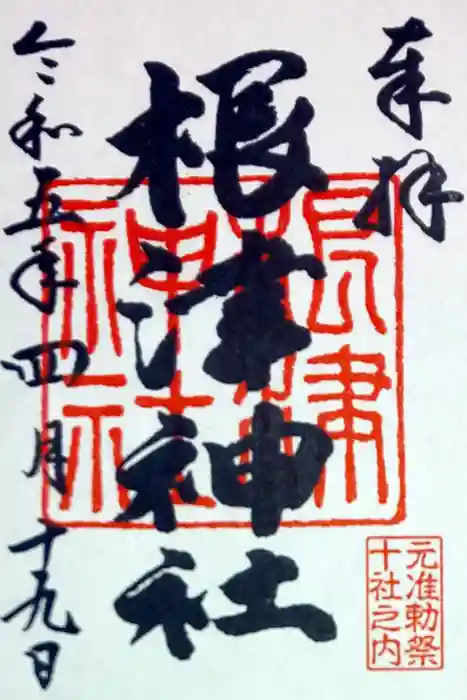 奉拝
根津神社
根津神社
令和五年四月十九日
元准勅祭
十社之内